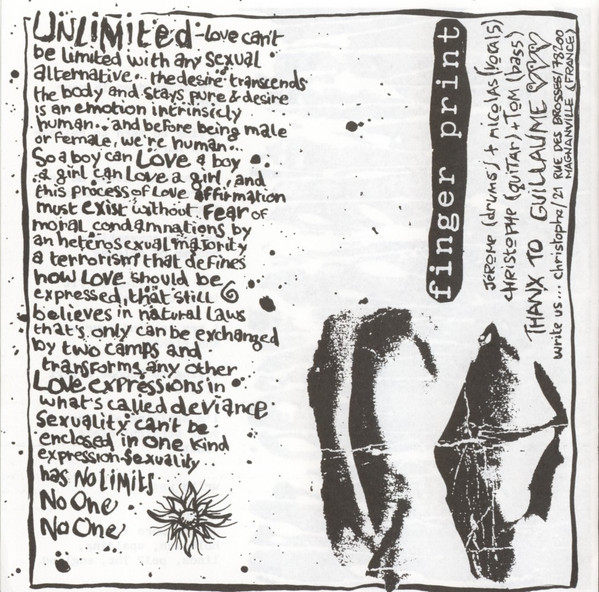 UNLIMITED - Love can't
be limited with any sexual
alternative... the desire transcends
the body and stays pure & desire
is an emotion intrinsicly
human... and before being male
or female, we're human...
So a boy can Love a boy
..a girl can Love a girl, and
this process of Love affirmation
must exist without fear of
moral condamnations by
an heterosexual majority
a terrorism that defines
how Love should be
expressed, that still
believes in natural laws
that's only can be exchanged
by two camps and
transforms any other
Love expressions in
what's called deviance
Sexuality can't be
enclosed in one kind
expression. Sexuality..
has No Limits
No One
No One
finger print
Jérome (drums) + Nicolas (vocals)
Christophe (guitar) + Tom (bass)
THANX TO GUILLAUME ♡♡♡
write us... christophe/21 RUE DES BROSSES/78200
MAGNANVILLE (FRANCE)